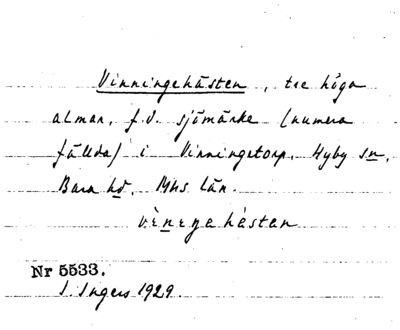 Vinningehästen, tre höga
almar, f.d. sjömärke (numera
fällda) i Vinningetorp, Hyby sn,
Bara hd, Mhs län.
Nr 5533.
I. Ingers 1929.